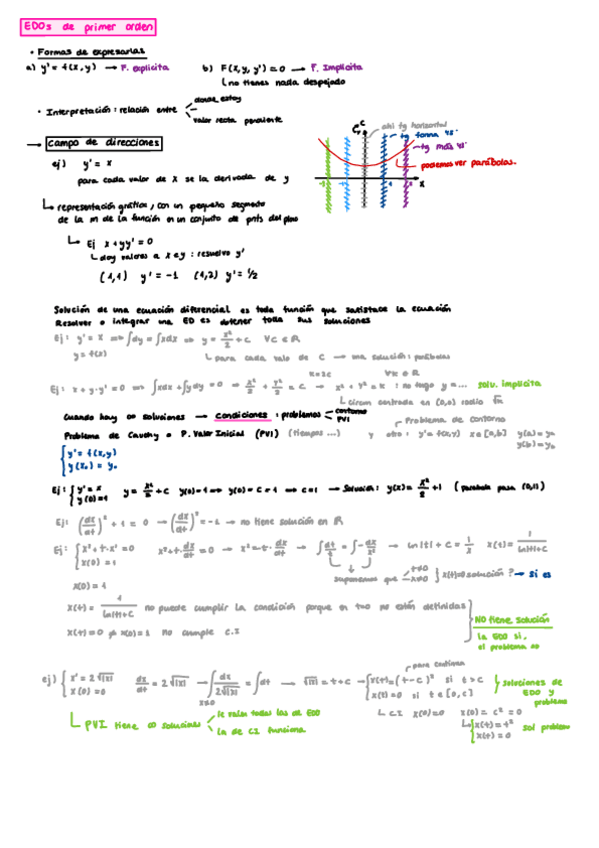 EDOs de primer orden
• Formas de expresarlas
a) y' = f(x,y) → F. explícita    b) F(x,y,y') = 0 → F. Implícita
no tienes nada despejado
• Interpretación: relación entre
donde estoy
valor recta pendiente
→ campo de direcciones
ej) y' = x
para cada valor de x se la derivada de y
ahí tg horizontal
tg forma 45°
tg más 45°
podemos ver parábolas.
x
↳ representación gráfica, con un pequeño segmento
de la m de la función en un conjunto de pnts del plano
↳ Ej x + yy' = 0
doy valores a x e y : resuelvo y'
(1,1) y' = -1    (1,2) y' = 1/2
Solución de una ecuación diferencial es toda función que satisface la ecuación
Resolver o integrar una ED es obtener toda sus soluciones
Ej: y' = x ⟹ ∫dy = ∫xdx ⟹ y = x²/2 + C    ∀C ∈ ℝ
y = f(x)    ↳ para cada valo de C → una solución: parábolas
k = 2C    ∀k ∈ ℝ
Ej: x + y·y' = 0 ⟹ ∫xdx + ∫ydy = 0 ⟹ x²/2 + y²/2 = C ⟹ x² + y² = k : no tengo y = ... solu. implícita
↳ circun centrada en (0,0) radio √k
Cuando hay ∞ soluciones → condiciones : problemas
contorno
PVI
Problema de Cauchy o P. Valor Inicial (PVI) (tiempos ...) y otro : y' = f(x,y) x ∈ [a,b] y(a) = yₐ
Problema de contorno
y(b) = y_b
{ y' = f(x,y)
y(x₀) = y₀
Ej: { y' = x    y = x²/2 + C    y(0) = 1 ⟹ y(0) = C = 1 ⟹ C = 1 → Solución: y(x) = x²/2 + 1 (parábola pasa (0,1))
y(0) = 1
Ej: (dx/dt)² + 1 = 0 → (dx/dt)² = -1 → no tiene solución en ℝ
Ej: { x² + t·x' = 0    x² + t·dx/dt = 0 → x² = -t·dx/dt → ∫dt/t = ∫-dx/x² → ln|t| + C = 1/x    x(t) = 1/(ln|t| + C)
x(0) = 1
suponemos que t≠0 x≠0 } x(t)=0 solución? → si es
x(0) = 1
x(t) = 1/(ln|t| + C) no puede cumplir la condición porque en t=0 no están definidas
x(t) = 0 ≠ x(0) = 1 no cumple C.I
NO tiene solución
la EDO si,
el problema no
ej) { x' = 2√|x|    dx/dt = 2√|x| → ∫dx/(2√|x|) = ∫dt → √|x| = t + C → { x(t) = (t - C)² si t > C
x(0) = 0
x≠0
para continua
x(t) = 0 si t ∈ [0, C]
soluciones de
EDO y
problema
↳ C.I x(0) = 0    x(0) = C² = 0
x(t) = t²
x(t) = 0
sol problema
↳ PVI tiene ∞ soluciones
le valen todas las de EDO
la de CI funciona